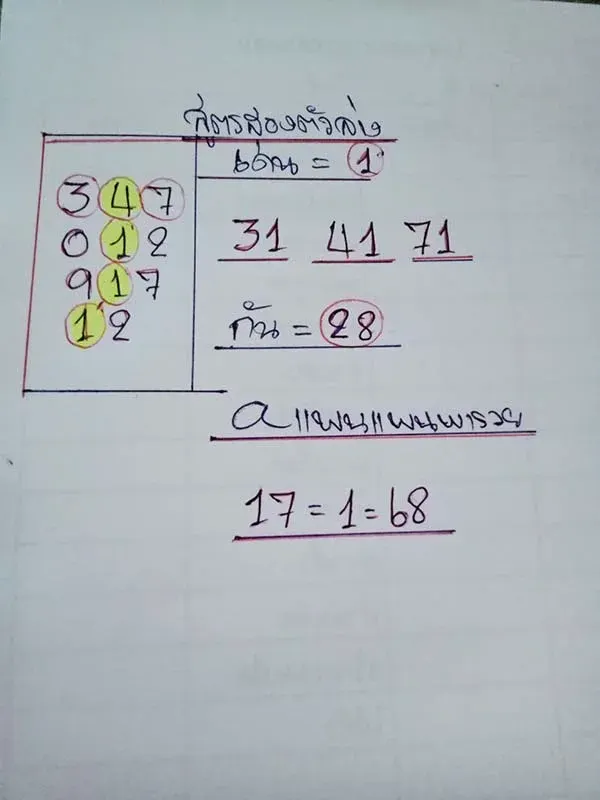 สูตรสองตัวล่าง
เด่น = 1
3 4 7
0 1 2
9 1 7
1 2
31 41 71
กัน = 28
aแพนแพนพารวย
17 = 1 = 68